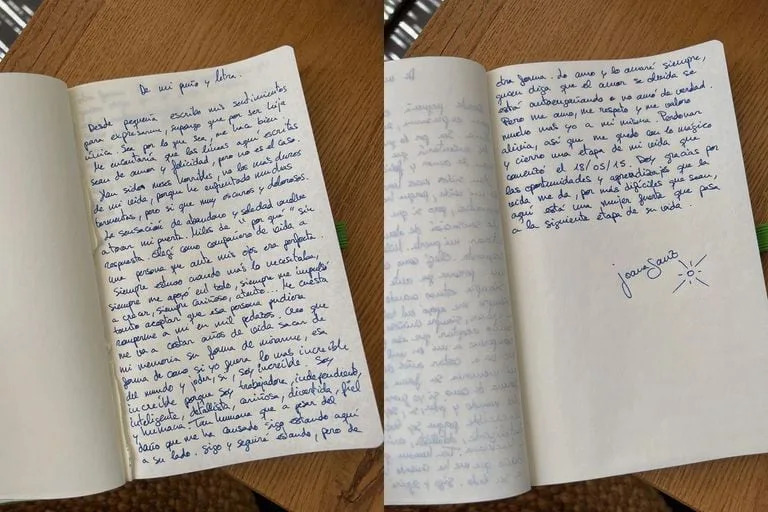 De mi puño y letra.
Desde pequeña escribo mis sentimientos
para expresarme, supongo que por ser hija
única. Sea por lo que sea, me hace bien.
Me encantaría que las líneas aquí escritas
sean de amor y felicidad, pero no es el caso.
Han sido meses horribles, no los más duros
de mi vida, porque he enfrentado muchas
tormentas, pero sí que muy oscuros y dolorosos.
La sensación de abandono y soledad vuelve
a tocar mi puerta. Miles de "y por qué" sin
respuesta. Elegí como compañero de vida a
una persona que ante mis ojos era perfecta.
Siempre estuvo cuando más lo necesitaba,
siempre me apoyó en todo, siempre me impulsó
a crecer, siempre cariñoso, atento... Me cuesta
tanto aceptar que esa persona pudiera
romperme a mí en mil pedazos. Creo que
me va a costar años de vida sacar de
mi memoria su forma de mirarme, esa
forma de como si yo fuera lo más increíble
del mundo y joder, sí, soy increíble. Soy
increíble porque soy trabajadora, independiente,
inteligente, detallista, cariñosa, divertida, fiel
y humana. Tan humana que a pesar del
daño que me ha causado sigo estando aquí
a su lado. Sigo y seguiré estando, pero de
otra forma. Lo amo y lo amaré siempre,
quien diga que el amor se olvida se
está autoengañando o no amó de verdad.
Pero me amo, me respeto y me valoro
mucho más yo a mí misma. Perdonar
alivia, así que me quedo con lo mágico
y cierro una etapa de mi vida que
comenzó el 18/05/15. Doy gracias por
las oportunidades y aprendizajes que la
vida me da, por más difíciles que sean,
aquí está una mujer fuerte que pasa
a la siguiente etapa de su vida.
Joana Sanz